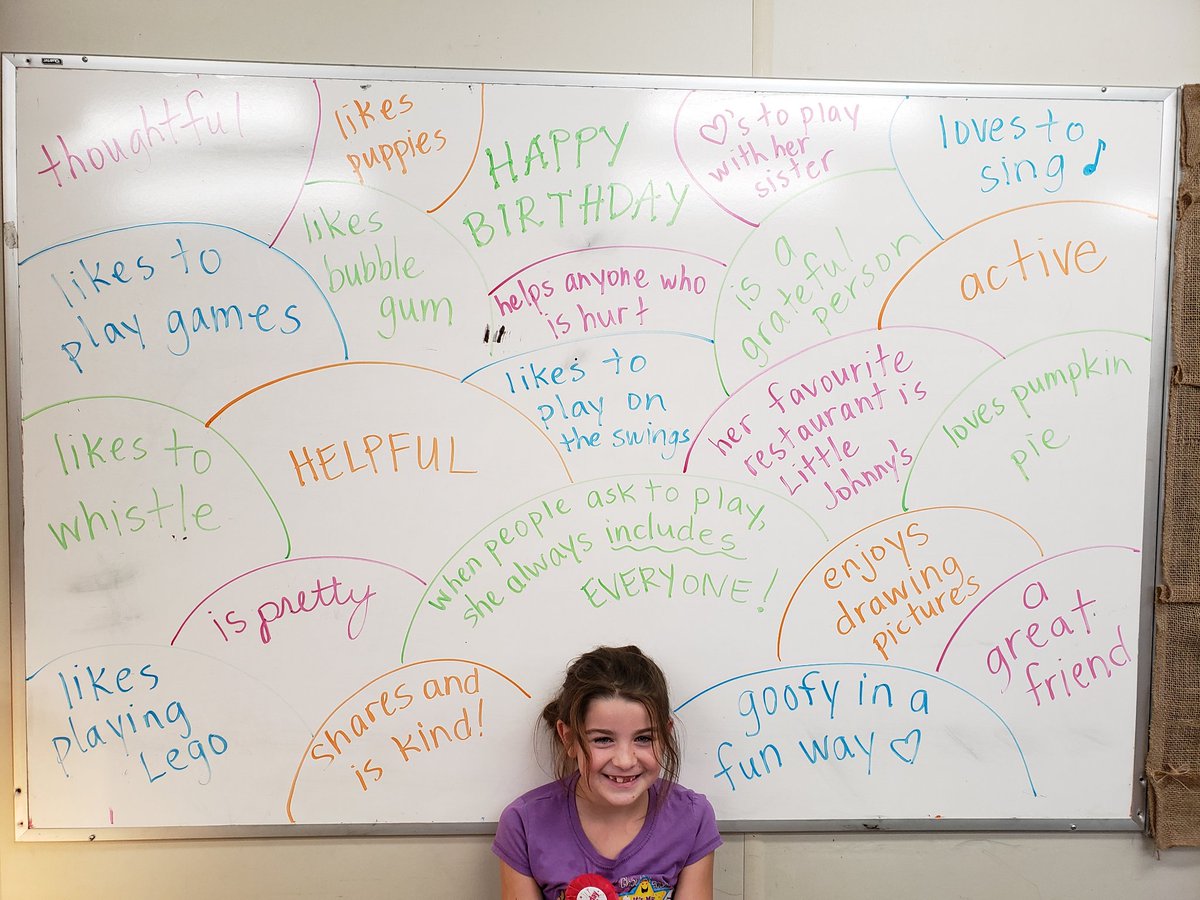 thoughtful
likes
puppies
HAPPY
BIRTHDAY
♡'s to play
with her
sister
loves to
sing ♪
likes to
play games
likes
bubble
gum
helps anyone who
is hurt
is a
grateful
person
active
likes to
whistle
HELPFUL
likes to
play on
the swings
her favourite
restaurant is
Little
Johnny's
loves pumpkin
pie
is pretty
when people ask to play,
she always includes
EVERYONE!
enjoys
drawing
pictures
a
great
friend
likes
playing
Lego
shares and
is kind!
goofy in a
fun way ♡